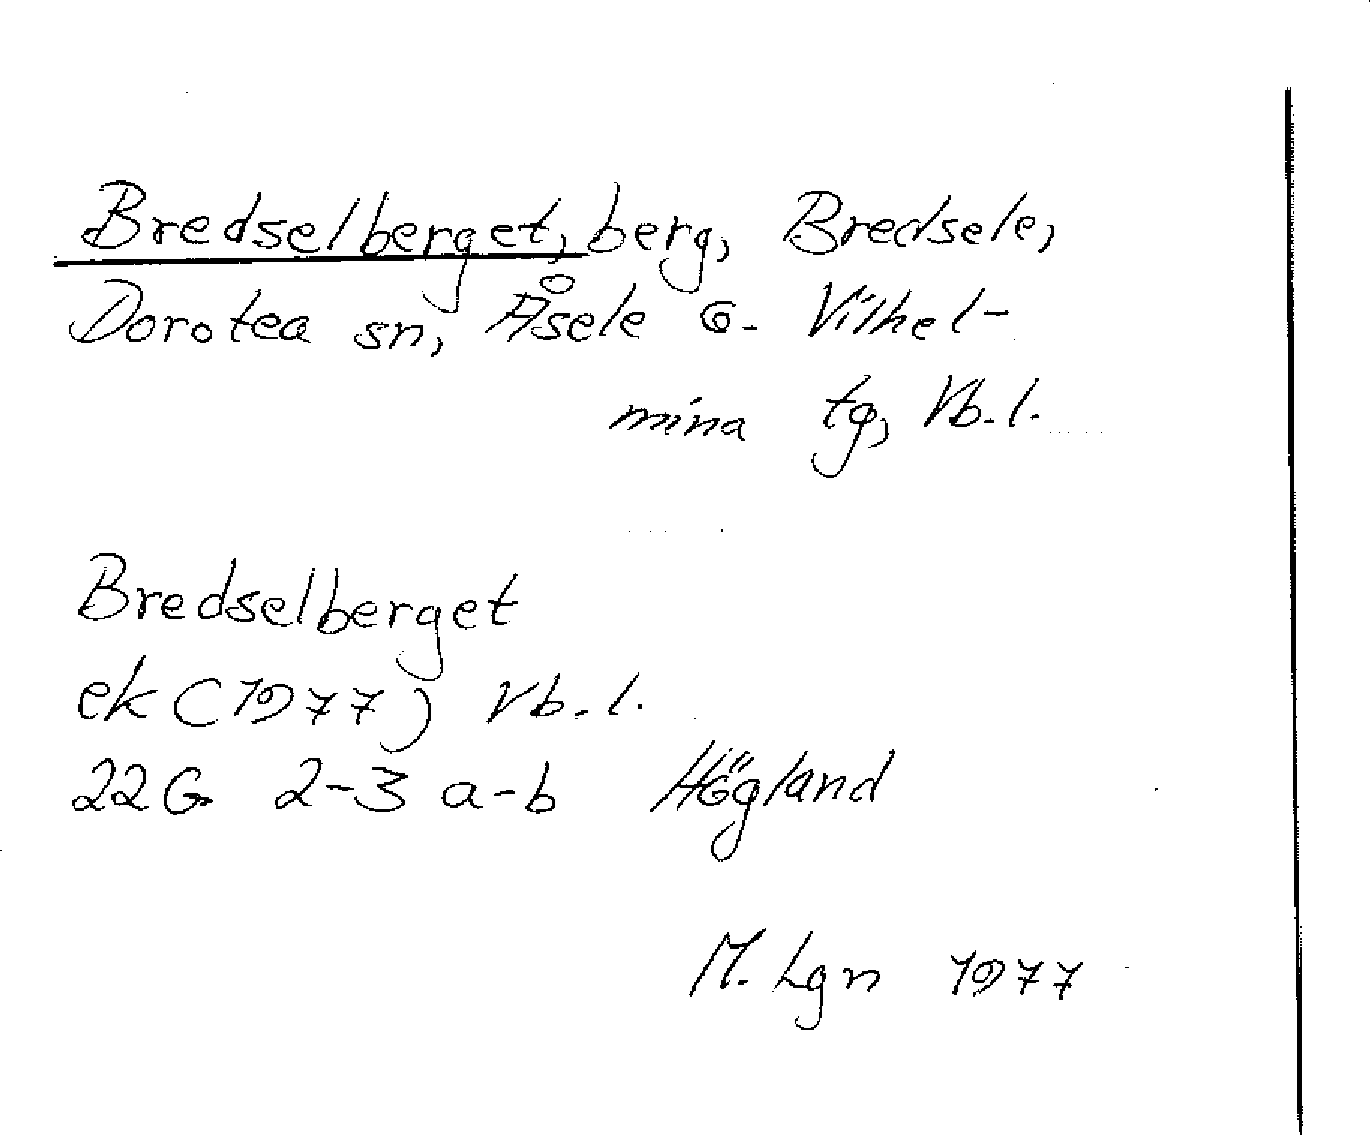 Bredselberget, berg, Bredsele,
Dorotea sn, Åsele o. Vilhel-
mina tg, Vb. l.
Bredselberget
ek (1977) Vb. l.
22G 2-3 a-b Högland
M. Lgn 1977